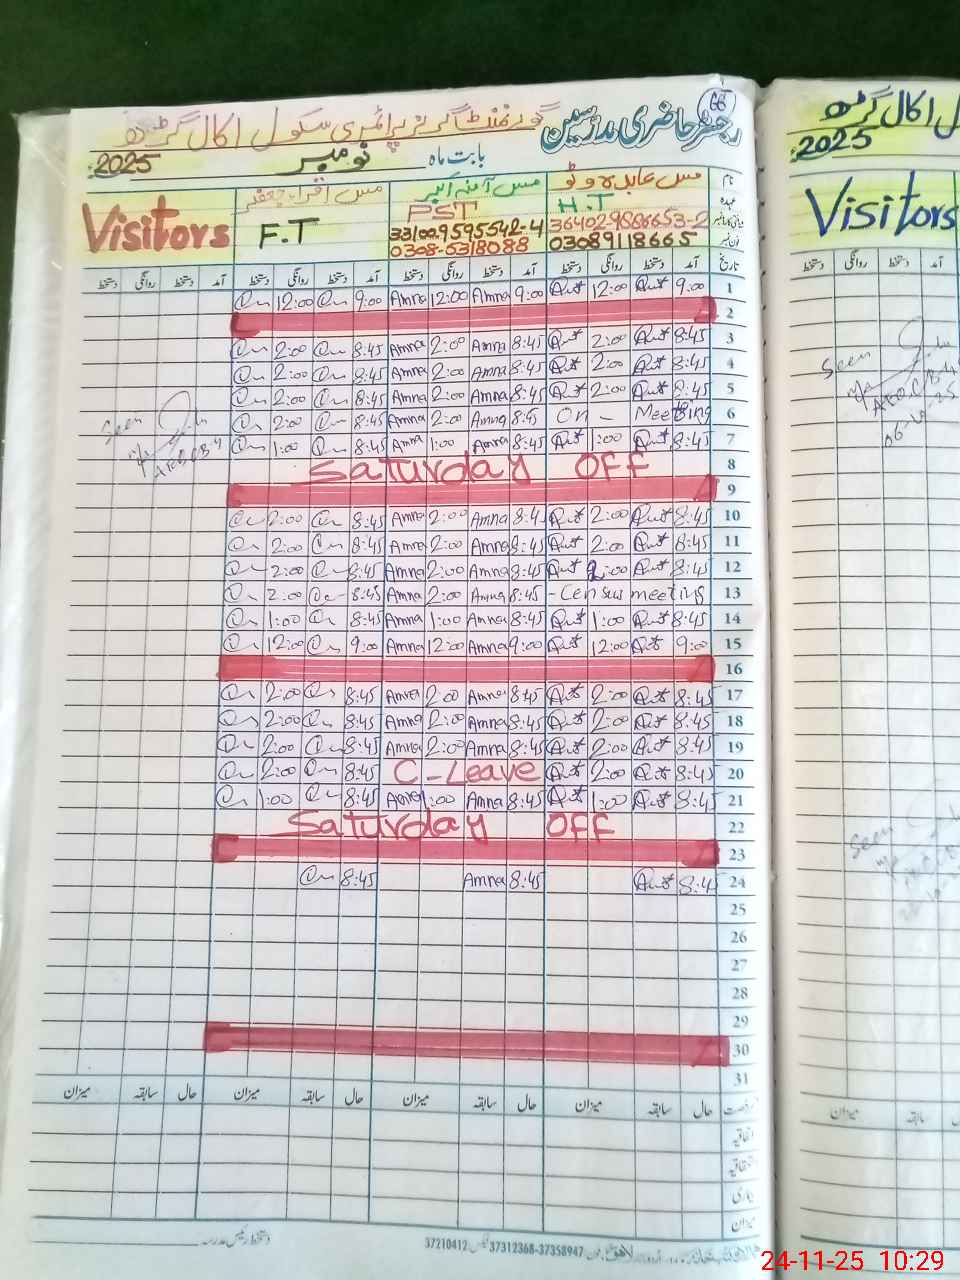 66
رجسٹر حاضری مدرسین گورنمنٹ گرلز پرائمری سکول اکال گڑھ
بابت ماہ نومبر 2025
نام مس عابدہ مس آمنہ اکبر مس اقراء جعفر Visitors
عہدہ H.T PST F.T
36402-9886653-2 33100-9595542-4
فون نمبر 03089118665 0308-5318088
تاریخ آمد دستخط روانگی دستخط آمد دستخط روانگی دستخط آمد دستخط روانگی دستخط آمد دستخط روانگی دستخط
12:00 9:00 Amna 12:00 Amna 9:00 12:00 9:00 1
2
2:00 8:45 Amna 2:00 Amna 8:45 2:00 8:45 3
2:00 8:45 Amna 2:00 Amna 8:45 2:00 8:45 4
2:00 8:45 Amna 2:00 Amna 8:45 2:00 8:45 5
Seen 2:00 8:45 Amna 2:00 Amna 8:45 On - Meeting 6
1:00 8:45 Amna 1:00 Amna 8:45 1:00 8:45 7
Saturday OFF 8
9
2:00 8:45 Amna 2:00 Amna 8:4 2:00 8:45 10
2:00 8:45 Amna 2:00 Amna 8:45 2:00 8:45 11
2:00 8:45 Amna 2:00 Amna 8:45 2:00 8:45 12
2:00 8:45 Amna 2:00 Amna 8:45 - Census meeting 13
1:00 8:45 Amna 1:00 Amna 8:45 1:00 8:45 14
12:00 9:00 Amna 12:00 Amna 9:00 12:00 9:00 15
16
2:00 8:45 Amna 2:00 Amna 8:45 2:00 8:45 17
2:00 8:45 Amna 2:00 Amna 8:45 2:00 8:45 18
2:00 8:45 Amna 2:00 Amna 8:45 2:00 8:45 19
2:00 8:45 C-Leave 2:00 8:45 20
1:00 8:45 Amna 1:00 Amna 8:45 1:00 8:45 21
Saturday OFF 22
23
8:45 Amna 8:45 8:4 24
25
26
27
28
29
30
31
حال سابقہ میزان حال سابقہ میزان حال سابقہ میزان حال سابقہ میزان
اتفاقیہ
بیماری
میزان
دستخط رئیس مدرسہ
37210412 فیکس 37312368-37358947 فون
اکال گڑھ
2025
Visitors
آمد دستخط روانگی دستخط
Seen
06-11-25
Seen
سابقہ میزان
24-11-25 10:29